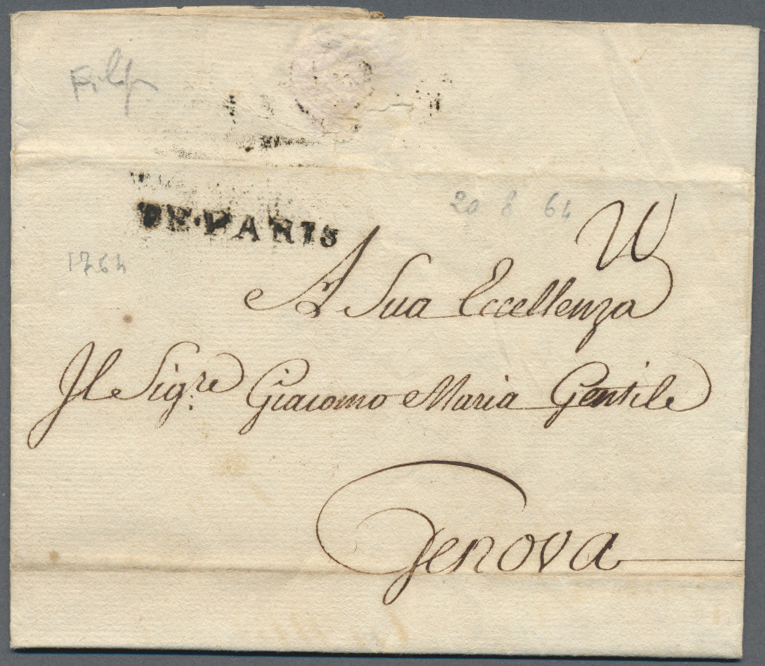 DE·PARIS
20 8 64
1764
A Sua Eccellenza
Il Sig.re Giacomo Maria Gentile
Genova